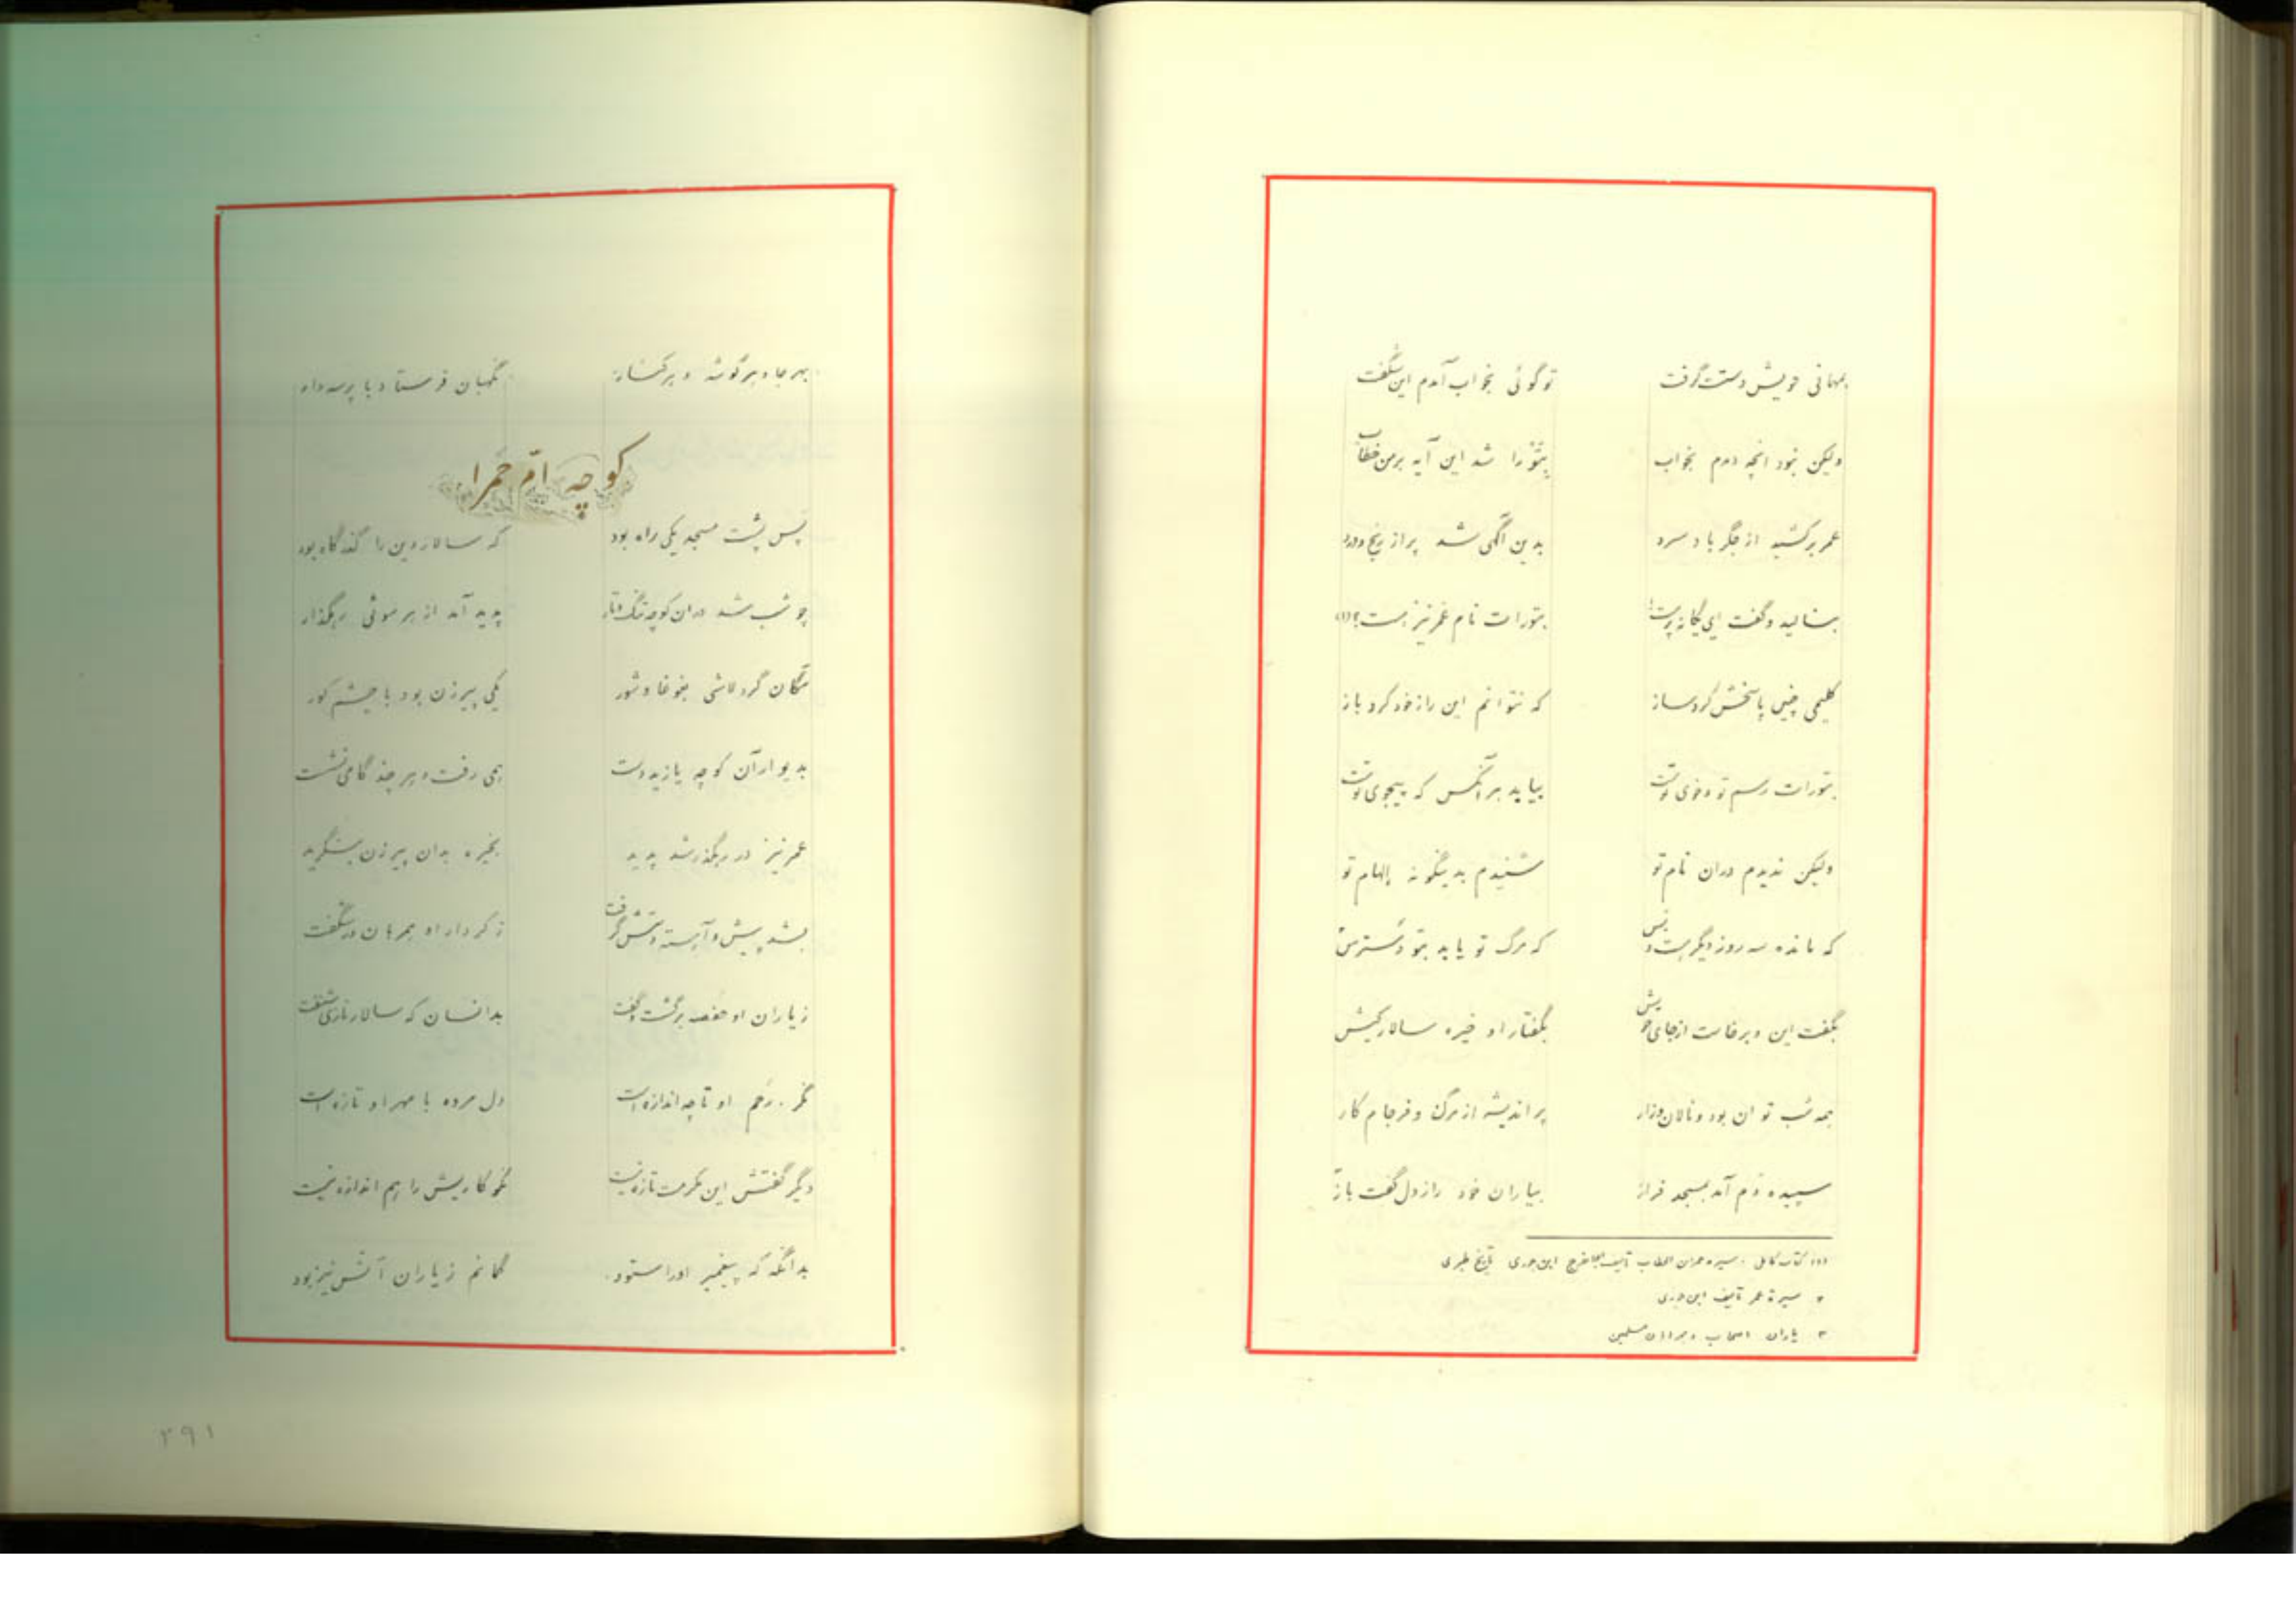 بمهانی خویش دستت گرفت تو گوئی بخواب آمدم این شگفت
ولیکن نبود آنچه دیدم بخواب بتورا شد این آیه بر من خطاب
عمر برکشید از جگر باد سرد بدین آگهی شد پر از رنج و درد
بنالید و گفت ای یگانه پرست! بتورات نام عمر نیز هست؟ (۱)
کلیمی چنین پاسخش کرد ساز که نتوانم این راز خود کرد باز
بتورات رسم تو و خوی تست بیابد هر آنکس که پیجوی تست
ولیکن ندیدم در آن نام تو شنیدم بدینگونه الهام تو
که مانده سه روز دیگر هست و بس که مرگ تو یابد بتو دسترس
بگفت این و برخاست از جای خویش بگفتار او خیره سالار کیش
همه شب نوان بود و نالان و زار پر اندیشه از مرگ و فرجام کار
سپیده دم آمد بمسجد فراز بیاران خود راز دل گفت باز
(۱) کتاب کامل . سیره عمر بن الخطاب تألیف ابوالفرج ابن جوزی تاریخ طبری
۲ سیرة عمر تألیف ابن جوزی
۳ یاران اصحاب و سرداران مسلمین
بهر جا و هر گوشه و هر کنار نگهبان فرستاد با پرسه دار
کوچه امّ حمرا
پس پشت مسجد یکی راه بود که سالار دین را گذرگاه بود
چو شب شد در آن کوچه تنگ و تار پدید آمد از هر سوئی رهگذار
سگان گرد لاشی بغوغا و شور یکی پیرزن بود با چشم کور
بدیوار آن کوچه یازید دست همی رفت و هر چند گامی نشست
عمر نیز در رهگذر شد پدید بخیره بدان پیرزن بنگرید
بشد پیش و آهسته دستش گرفت ز کردار او همرهان در شگفت
ز یاران او حفصه برگشت و گفت بدانسان که سالار تازی شنفت
نگر رحم او تا چه اندازه است دل مرده با مهر او تازه است
دیگر گفتش این مکرمت تازه نیست نکو کاریش را هم اندازه نیست
بدانگه که پیغمبر او را ستود گمانم ز یاران آنشس نیز بود
۲۹۱